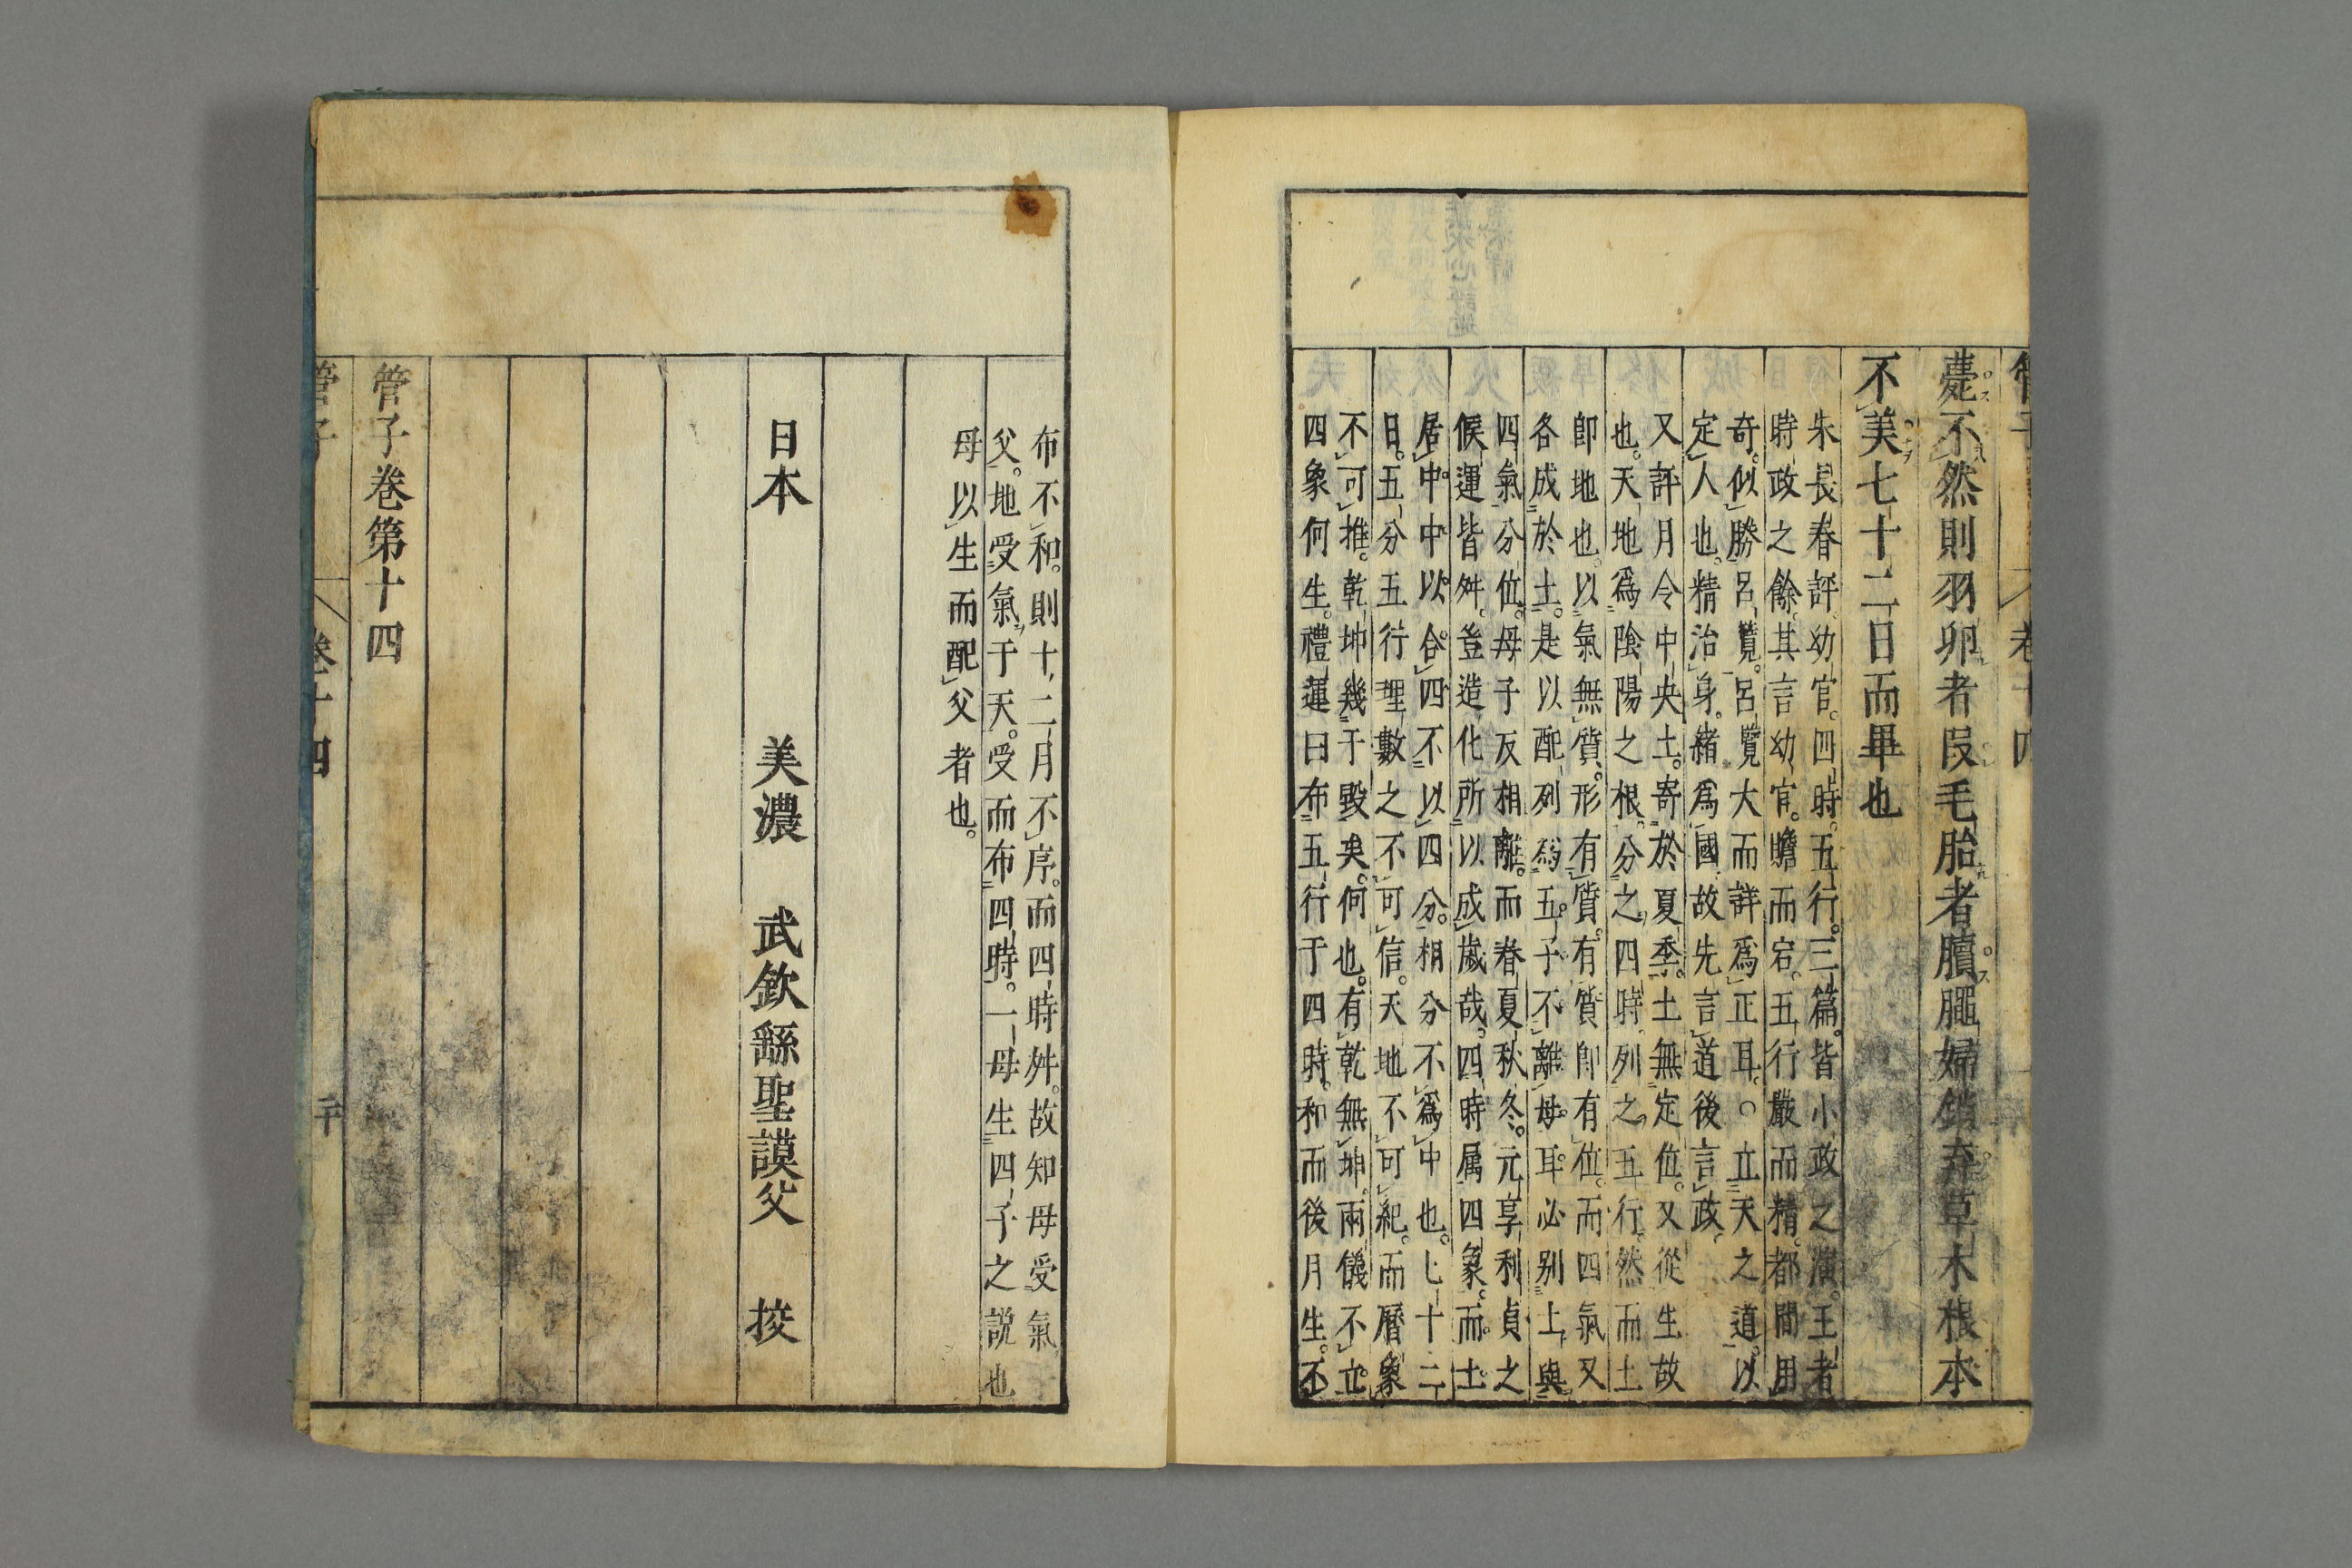 薨不然則羽卵者段毛胎者䐵𦜽婦銷弃草木根本
不美七十二日而畢也
朱長春評幼官四時五行三篇皆小政之演王者
時政之餘其言幼官贍而宕五行嚴而精都間用
奇似勝呂覽呂覽大而詳爲正耳○立天之道以
定人也精治身緒爲國故先言道後言政
又評月令中央土寄於夏季土無定位又從生故
也天地爲陰陽之根分之四時列之五行然而土
卽地也以氣無質形有質有質卽有位而四氣又
各成於土是以配列爲五子不離母耳必别上與
四氣分位母子反相離而春夏秋冬元享利貞之
候運皆舛豈造化所以成歲哉四時属四象而土
居中中以合四不以四分相分不爲中也七十二
日五分五行理數之不可信天地不可紀而曆象
不可推乾坤幾于毀矣何也有乾無坤兩儀不立
四象何生禮運曰布五行于四時和而後月生不
布不和則十二月不序而四時舛故知母受氣
父地受氣于天受而布四時一母生四子之説也
母以生而配父者也
日本 美濃 武欽繇聖謨父 挍
管子卷第十四